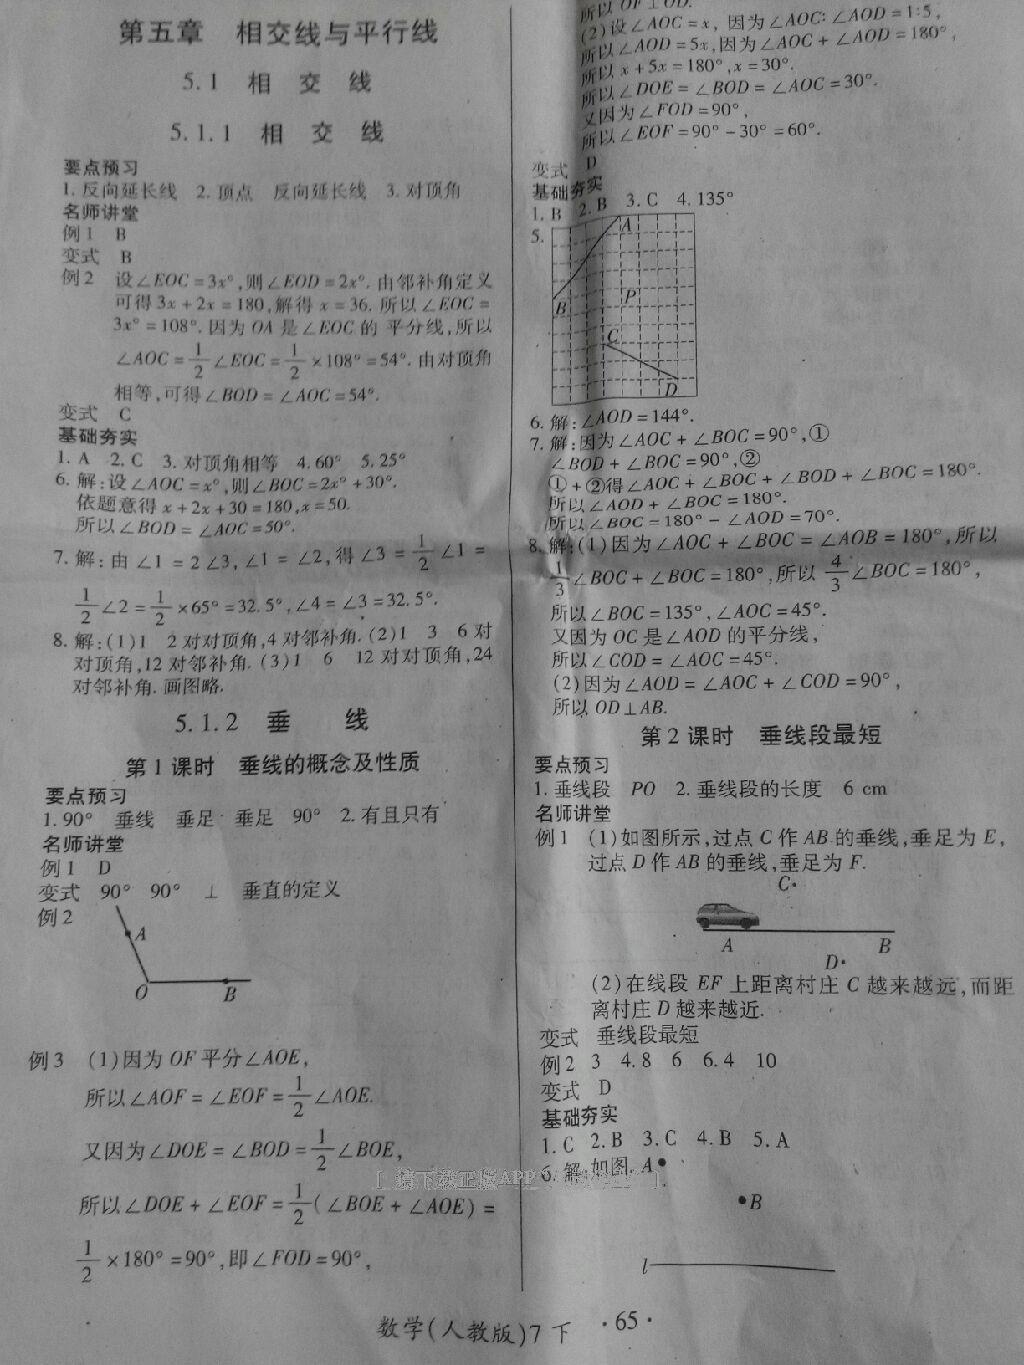 第五章 相交线与平行线
5.1 相 交 线
5.1.1 相 交 线
要点预习
1. 反向延长线 2. 顶点 反向延长线 3. 对顶角
名师讲堂
例1 B
变式 B
例2 设∠EOC=3x°,则∠EOD=2x°. 由邻补角定义
可得3x+2x=180,解得 x=36. 所以∠EOC=
3x°=108°. 因为 OA 是∠EOC 的 平分线,所以
∠AOC=1/2∠EOC=1/2×108°=54°. 由对顶角
相等,可得∠BOD=∠AOC=54°.
变式 C
基础夯实
1. A 2. C 3. 对顶角相等 4. 60° 5. 25°
6. 解:设∠AOC=x°,则∠BOC=2x°+30°.
依题意得 x+2x+30=180,x=50.
所以∠BOD=∠AOC=50°.
7. 解:由∠1=2∠3,∠1=∠2,得∠3=1/2∠1=
1/2∠2=1/2×65°=32.5°,∠4=∠3=32.5°.
8. 解:(1)1 2对对顶角,4对邻补角. (2)1 3 6对
对顶角,12对邻补角. (3)1 6 12对对顶角,24
对邻补角. 画图略.
5.1.2 垂 线
第1课时 垂线的概念及性质
要点预习
1. 90° 垂线 垂足 垂足 90° 2. 有且只有
名师讲堂
例1 D
变式 90° 90° ⊥ 垂直的定义
例2
A
O B
例3 (1)因为 OF 平分∠AOE,
所以∠AOF=∠EOF=1/2∠AOE.
又因为∠DOE=∠BOD=1/2∠BOE,
所以∠DOE+∠EOF=1/2(∠BOE+∠AOE)=
1/2×180°=90°,即∠FOD=90°,
所以 OF⊥OD.
(2)设∠AOC=x,因为∠AOC∶∠AOD=1∶5,
所以∠AOD=5x,因为∠AOC+∠AOD=180°,
所以 x+5x=180°,x=30°.
所以∠DOE=∠BOD=∠AOC=30°.
又因为∠FOD=90°,
所以∠EOF=90°-30°=60°.
变式 D
基础夯实
1. B 2. B 3. C 4. 135°
5.
A
P
B
C
D
6. 解:∠AOD=144°.
7. 解:因为∠AOC+∠BOC=90°,①
∠BOD+∠BOC=90°,②
①+②得∠AOC+∠BOC+∠BOD+∠BOC=180°.
所以∠AOD+∠BOC=180°.
所以∠BOC=180°-∠AOD=70°.
8. 解:(1)因为∠AOC+∠BOC=∠AOB=180°,所以
1/3∠BOC+∠BOC=180°,所以4/3∠BOC=180°,
所以∠BOC=135°,∠AOC=45°.
又因为 OC 是∠AOD 的平分线,
所以∠COD=∠AOC=45°.
(2)因为∠AOD=∠AOC+∠COD=90°,
所以 OD⊥AB.
第2课时 垂线段最短
要点预习
1. 垂线段 PO 2. 垂线段的长度 6 cm
名师讲堂
例1 (1)如图所示,过点 C 作 AB 的垂线,垂足为 E,
过点 D 作 AB 的垂线,垂足为 F.
C
A B
D
(2)在线段 EF 上距离村庄 C 越来越远,而距
离村庄 D 越来越近.
变式 垂线段最短
例2 3 4.8 6 6.4 10
变式 D
基础夯实
1. C 2. B 3. C 4. B 5. A
6. 解 如图. A
B
l
数学(人教版)7 下 ·65·